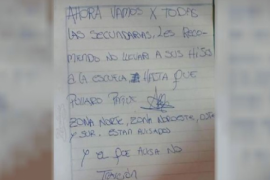 AHORA VAMOS X TODAS
LAS SECUNDARIAS, LES RECO-
MIENDO NO LLEVAR A SUS HIJOS
A LA ESCUELA HASTA QUE
ZONA NORTE, ZONA NOROESTE,
Y SUR. ESTAN AVISADOS
Y EL QUE AVISA NO
TRAICIONA